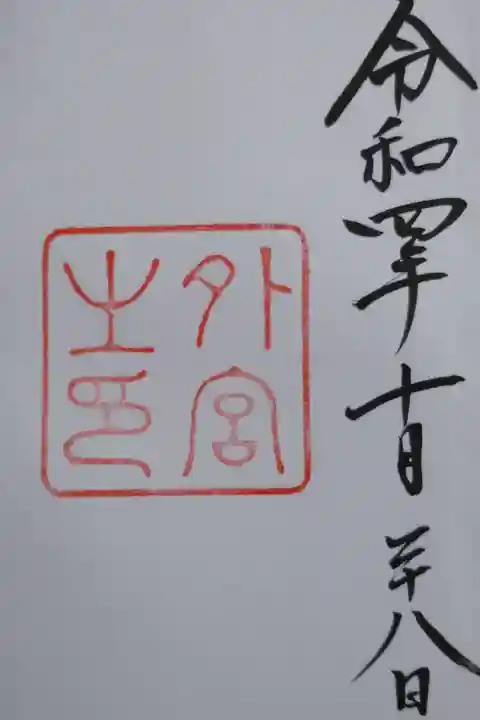 令和四年十月二十八日
外宮
之印